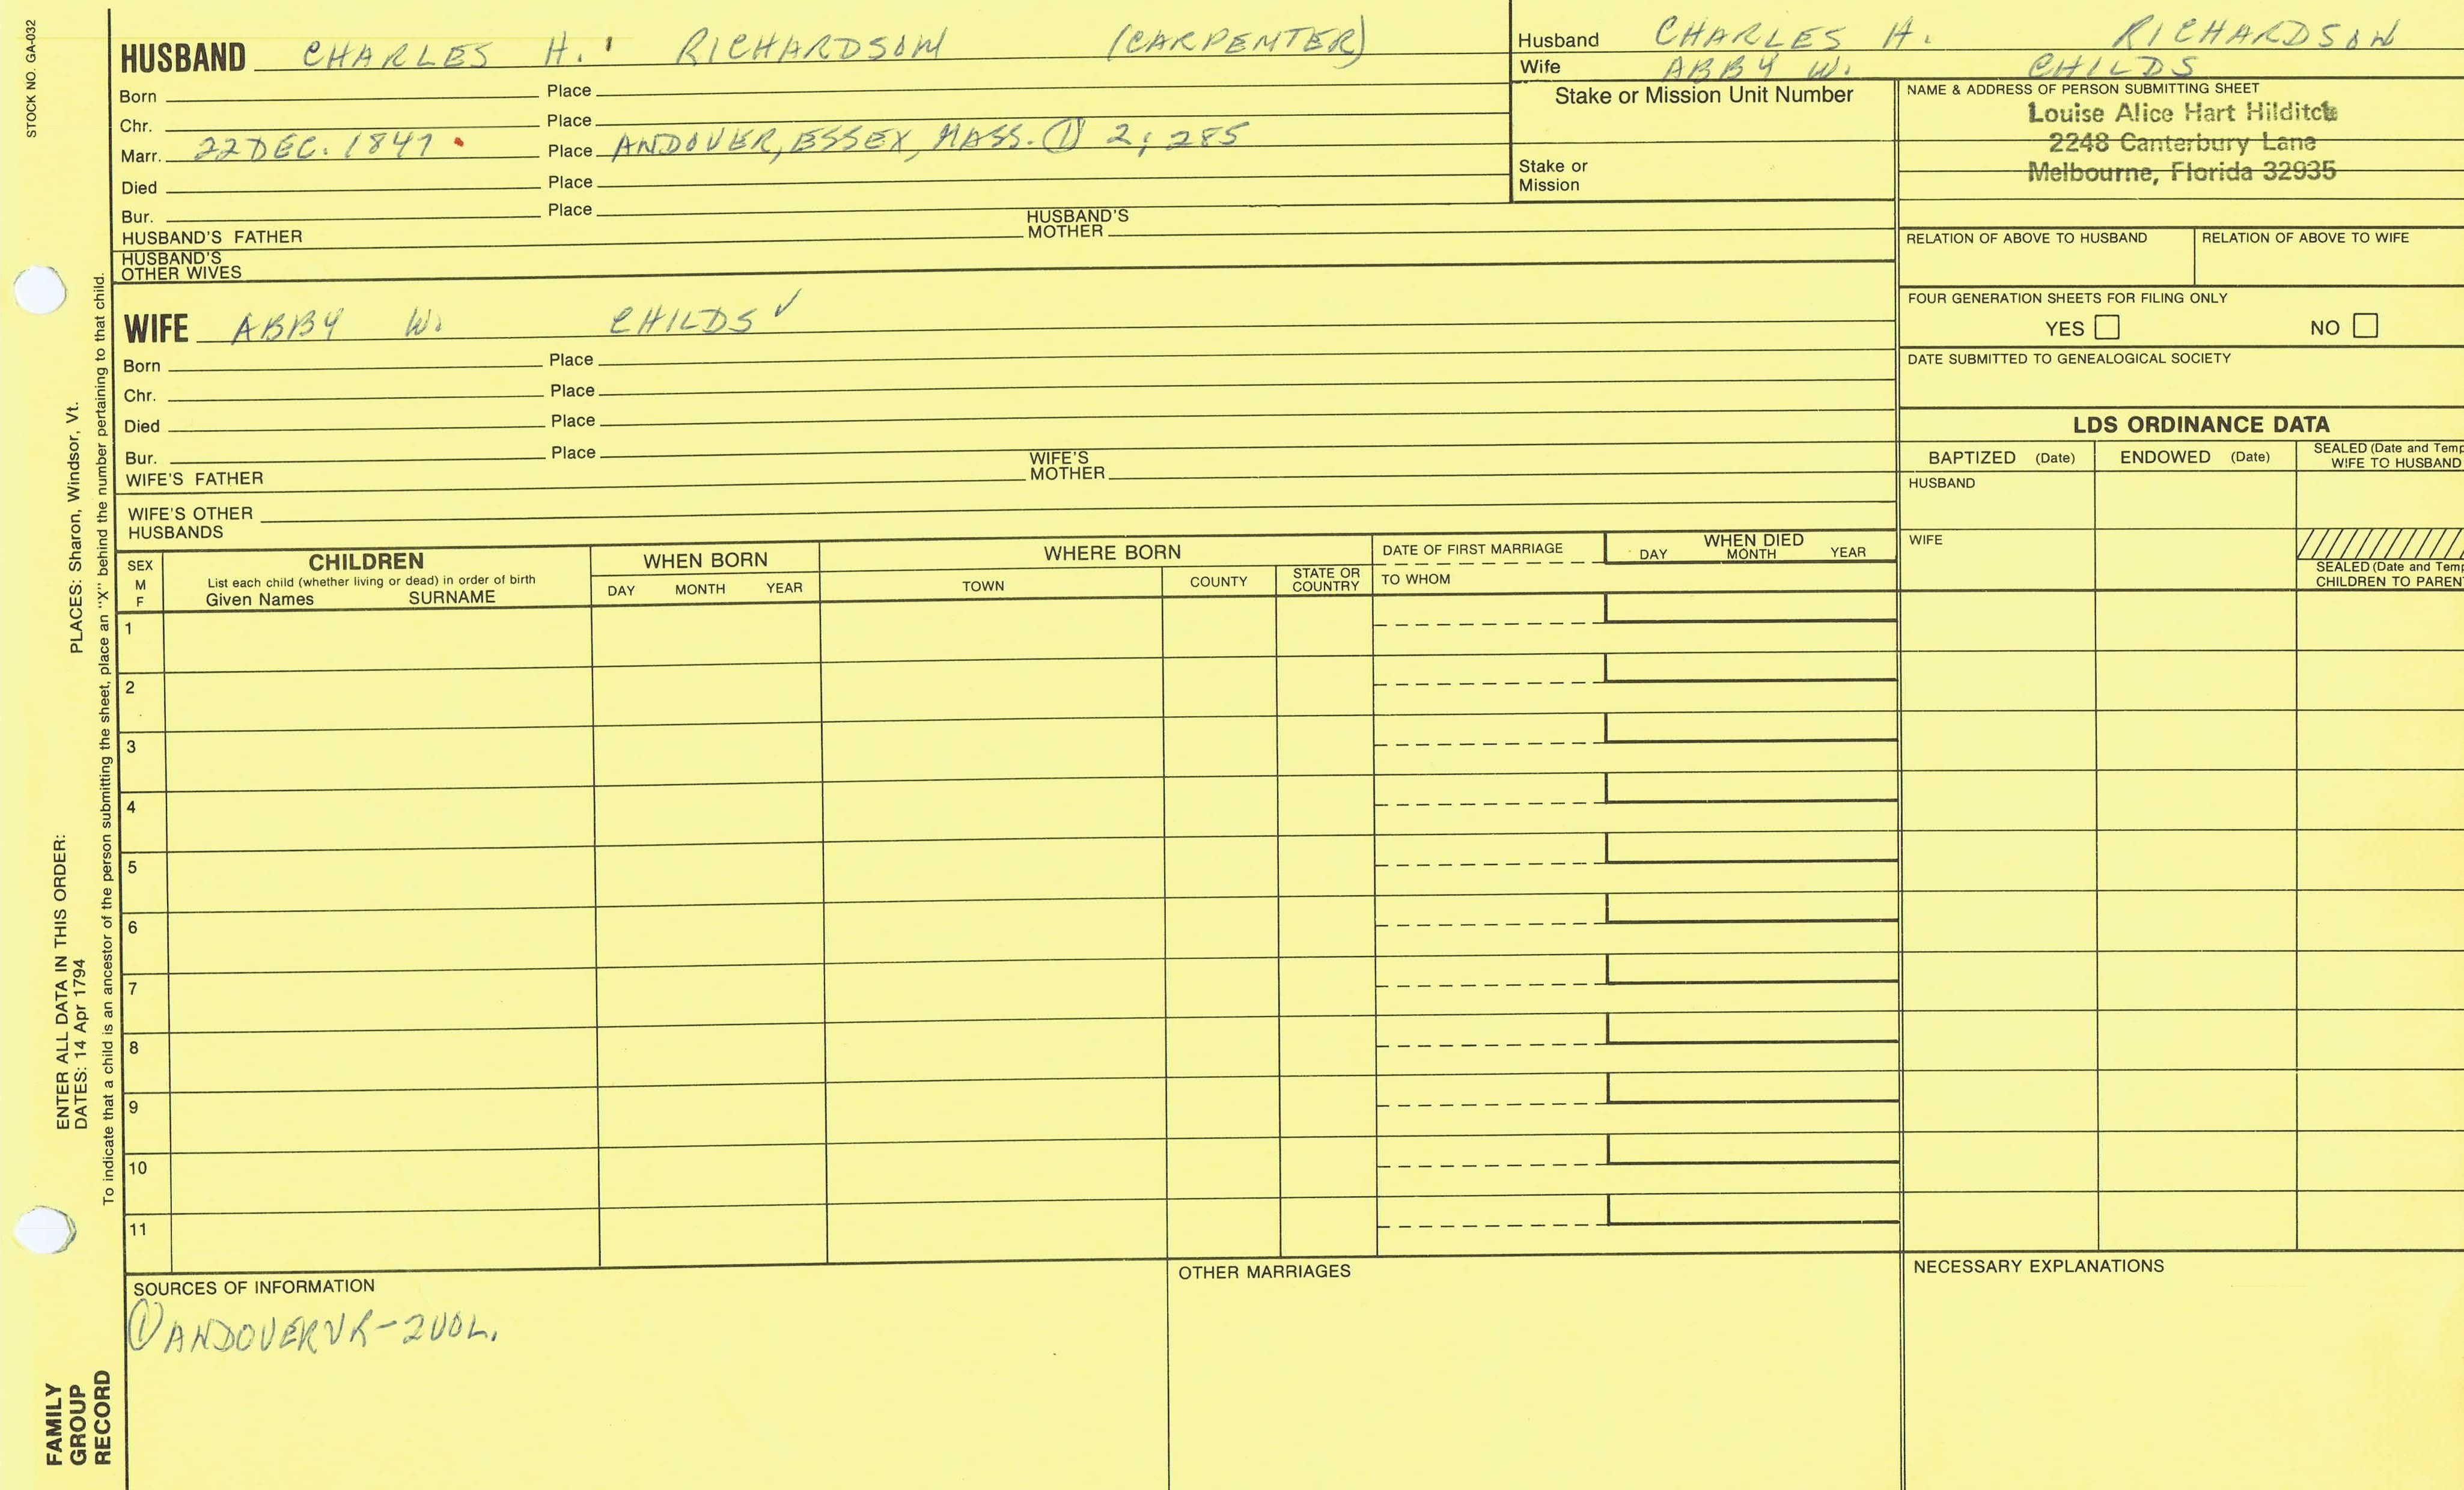 STOCK NO. GA-032
HUSBAND CHARLES H. RICHARDSON (CARPENTER)
Born Place
Chr. Place
Marr. 22 DEC. 1847 Place ANDOVER, ESSEX, MASS. ① 2; 285
Died Place
Bur. Place
HUSBAND'S FATHER HUSBAND'S MOTHER
HUSBAND'S OTHER WIVES
Husband CHARLES H. RICHARDSON
Wife ABBY W. CHILDS
Stake or Mission Unit Number
Stake or Mission
NAME & ADDRESS OF PERSON SUBMITTING SHEET
Louise Alice Hart Hilditch
2248 Canterbury Lane
Melbourne, Florida 32935
RELATION OF ABOVE TO HUSBAND RELATION OF ABOVE TO WIFE
FOUR GENERATION SHEETS FOR FILING ONLY
YES NO
DATE SUBMITTED TO GENEALOGICAL SOCIETY
WIFE ABBY W. CHILDS ✓
Born Place
Chr. Place
Died Place
Bur. Place
WIFE'S FATHER WIFE'S MOTHER
WIFE'S OTHER HUSBANDS
LDS ORDINANCE DATA
BAPTIZED (Date) ENDOWED (Date) SEALED (Date and Temp
WIFE TO HUSBAND
HUSBAND
WIFE
SEALED (Date and Temp
CHILDREN TO PAREN
SEX
M
F
CHILDREN
List each child (whether living or dead) in order of birth
Given Names SURNAME
WHEN BORN
DAY MONTH YEAR
WHERE BORN
TOWN COUNTY STATE OR COUNTRY
DATE OF FIRST MARRIAGE
TO WHOM
WHEN DIED
DAY MONTH YEAR
1
2
3
4
5
6
7
8
9
10
11
SOURCES OF INFORMATION
① ANDOVER VR - 2 VOL.
OTHER MARRIAGES
NECESSARY EXPLANATIONS
ENTER ALL DATA IN THIS ORDER:
DATES: 14 Apr 1794
PLACES: Sharon, Windsor, Vt.
To indicate that a child is an ancestor of the person submitting the sheet, place an "X" behind the number pertaining to that child.
FAMILY
GROUP
RECORD